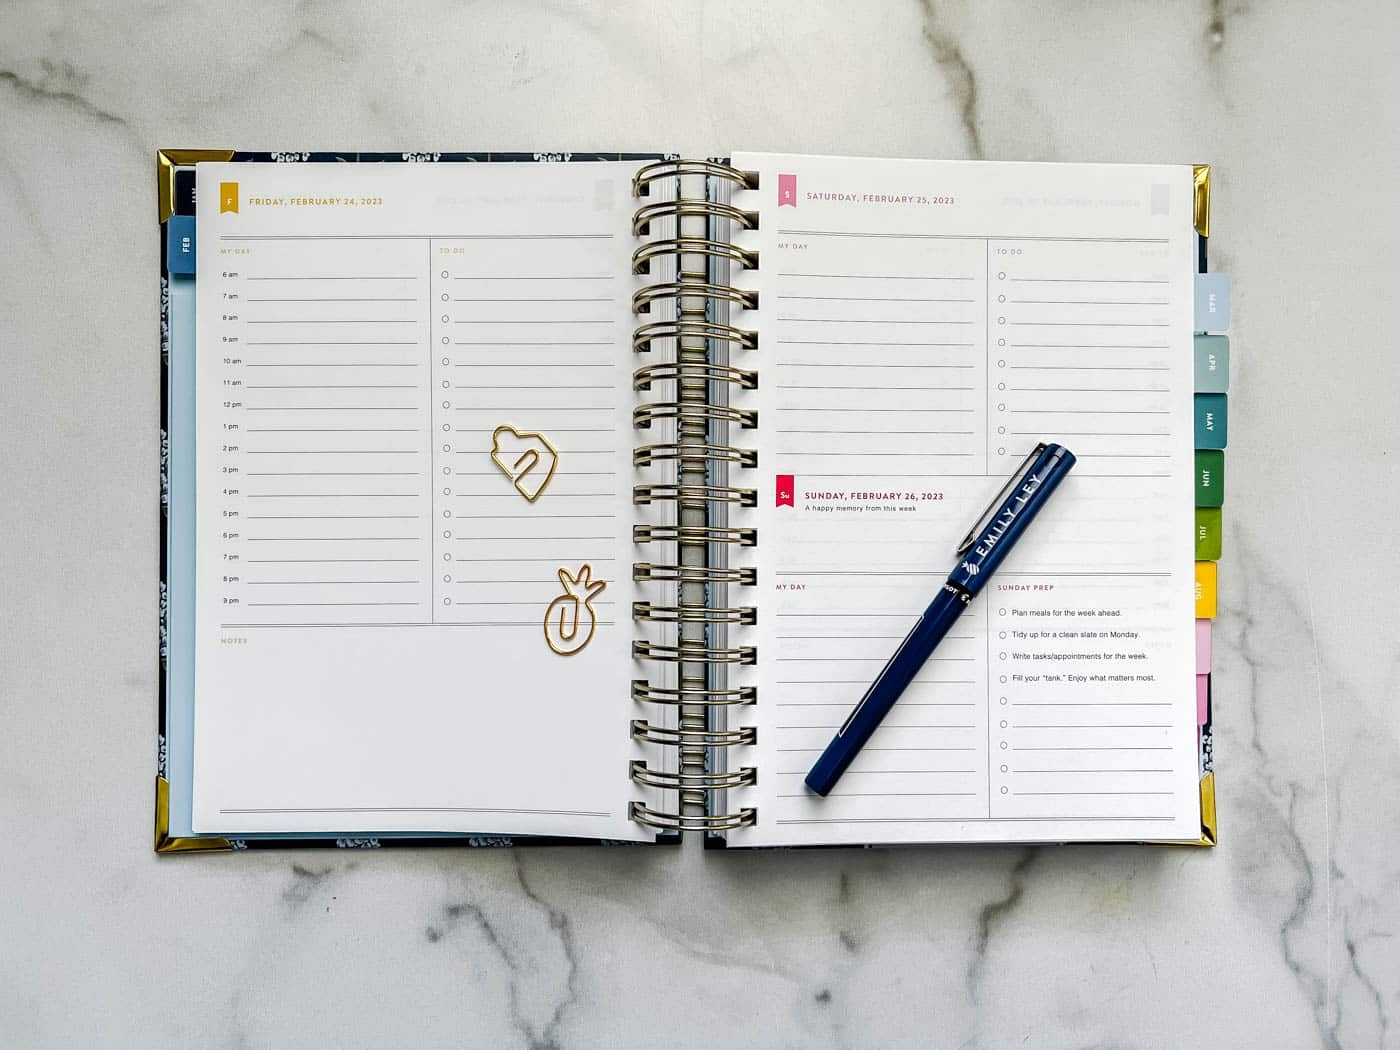 JAN
FEB
F
FRIDAY, FEBRUARY 24, 2023
MY DAY
TO DO
6 am
7 am
8 am
9 am
10 am
11 am
12 pm
1 pm
2 pm
3 pm
4 pm
5 pm
6 pm
7 pm
8 pm
9 pm
NOTES
S
SATURDAY, FEBRUARY 25, 2023
MY DAY
TO DO
Su
SUNDAY, FEBRUARY 26, 2023
A happy memory from this week
MY DAY
SUNDAY PREP
Plan meals for the week ahead.
Tidy up for a clean slate on Monday.
Write tasks/appointments for the week.
Fill your “tank.” Enjoy what matters most.
EMILY LEY
MAR
APR
MAY
JUN
JUL
AUG